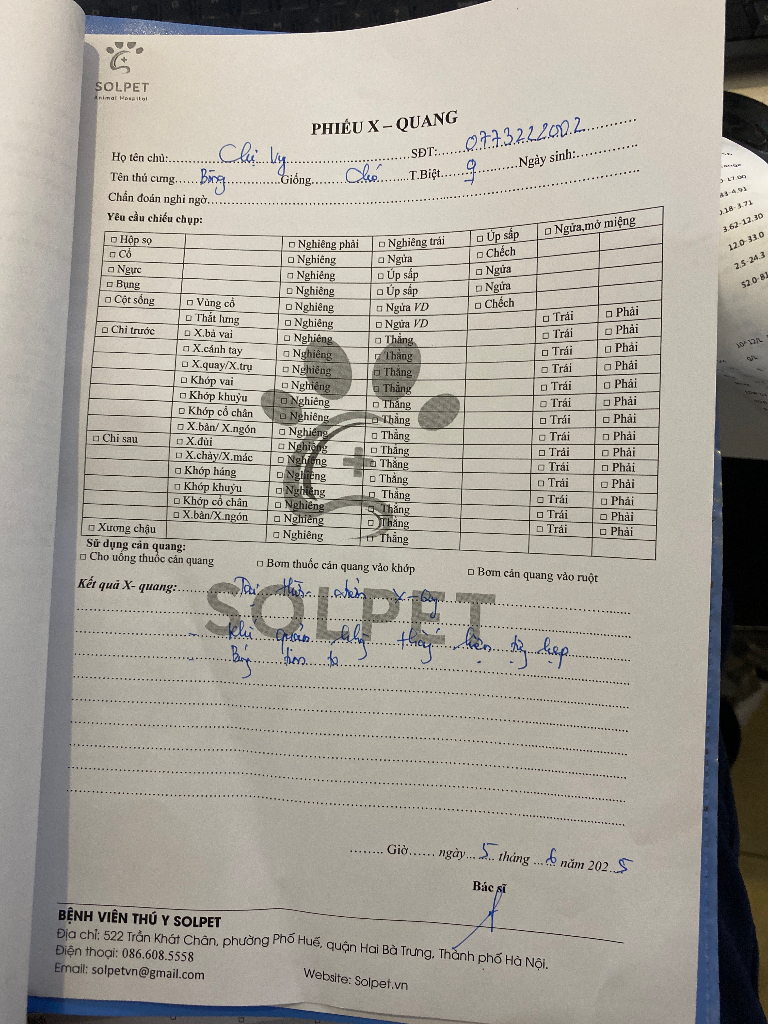 SOLPET
Animal Hospital
PHIẾU X – QUANG
Họ tên chủ: Chị Vy SĐT: 0773222002
Tên thú cưng Bống Giống Chó T.Biệt ♀ Ngày sinh:
Chẩn đoán nghi ngờ
Yêu cầu chiếu chụp:
□ Hộp sọ □ Nghiêng phải □ Nghiêng trái □ Úp sấp □ Ngửa,mở miệng
□ Cổ □ Nghiêng □ Ngửa □ Chếch
□ Ngực □ Nghiêng □ Úp sấp □ Ngửa
□ Bụng □ Nghiêng □ Úp sấp □ Ngửa
□ Cột sống □ Vùng cổ □ Nghiêng □ Ngửa VD □ Chếch
□ Thắt lưng □ Nghiêng □ Ngửa VD □ Trái □ Phải
□ Chi trước □ X.bả vai □ Nghiêng □ Thẳng □ Trái □ Phải
□ X.cánh tay □ Nghiêng □ Thẳng □ Trái □ Phải
□ X.quay/X.trụ □ Nghiêng □ Thẳng □ Trái □ Phải
□ Khớp vai □ Nghiêng □ Thẳng □ Trái □ Phải
□ Khớp khuỷu □ Nghiêng □ Thẳng □ Trái □ Phải
□ Khớp cổ chân □ Nghiêng □ Thẳng □ Trái □ Phải
□ X.bàn/ X.ngón □ Nghiêng □ Thẳng □ Trái □ Phải
□ Chi sau □ X.đùi □ Nghiêng □ Thẳng □ Trái □ Phải
□ X.chày/X.mác □ Nghiêng □ Thẳng □ Trái □ Phải
□ Khớp háng □ Nghiêng □ Thẳng □ Trái □ Phải
□ Khớp khuỷu □ Nghiêng □ Thẳng □ Trái □ Phải
□ Khớp cổ chân □ Nghiêng □ Thẳng □ Trái □ Phải
□ X.bàn/X.ngón □ Nghiêng □ Thẳng □ Trái □ Phải
□ Xương chậu □ Nghiêng □ Thẳng
Sử dụng cản quang:
□ Cho uống thuốc cản quang □ Bơm thuốc cản quang vào khớp □ Bơm cản quang vào ruột
Kết quả X- quang: Tại thời điểm X-quang
SOLPET
- Khí quản thấy hẹp
- Bóng tim to
Giờ ngày 5 tháng 6 năm 2025
Bác sĩ
BỆNH VIỆN THÚ Y SOLPET
Địa chỉ: 522 Trần Khát Chân, phường Phố Huế, quận Hai Bà Trưng, Thành phố Hà Nội.
Điện thoại: 086.608.5558
Email: solpetvn@gmail.com Website: Solpet.vn